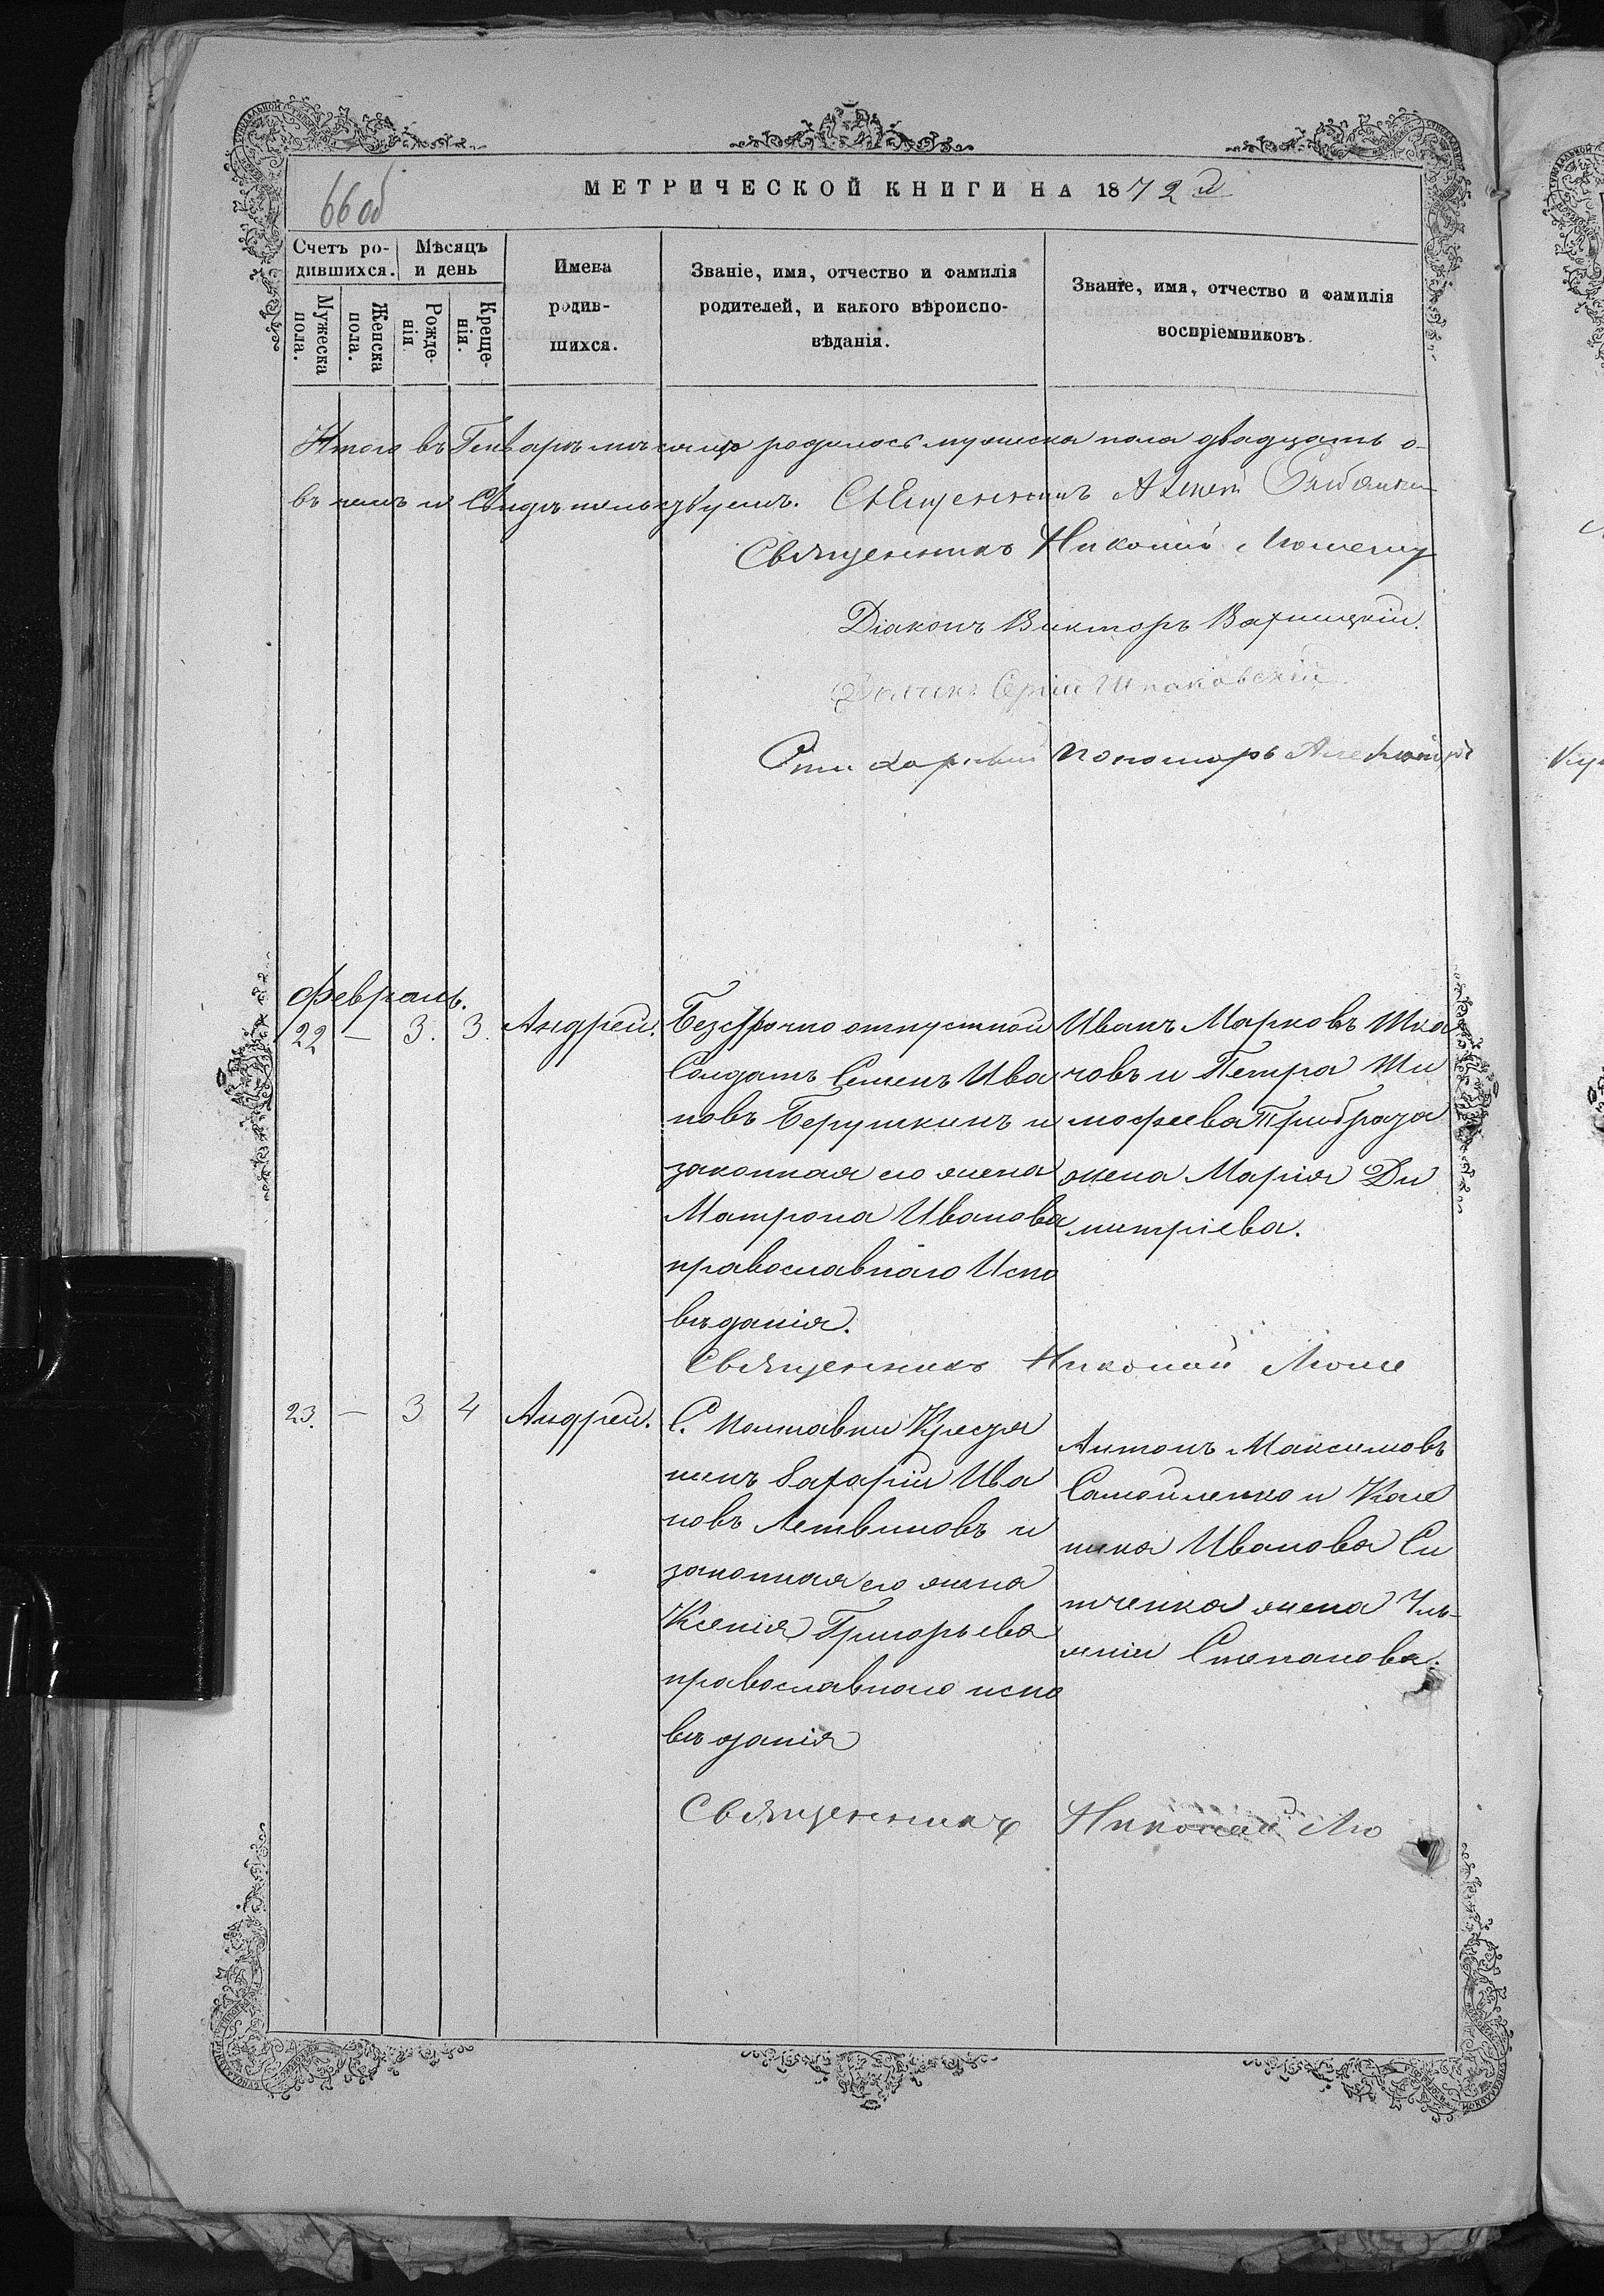 66 об
МЕТРИЧЕСКОЙ КНИГИ НА 1872 й
Счетъ ро-
дившихся.
Мужеска
пола.
Женска
пола.
Мѣсяцъ
и день
Рожде-
нія
Креще-
нія.
Имена
родив-
шихся.
Званіе, имя, отчество и фамилія
родителей, и какого вѣроиспо-
вѣданія.
Званіе, имя, отчество и фамилія
воспріемниковъ.
Итого въ Генварѣ мѣсяцѣ родилось мужеска пола двадцать о-
въ чемъ и Свидѣтельствуемъ. Священникъ
Священникъ Николай
Діаконъ Викторъ
Сергій Шпаковскій
Пономарь
Февраль.
22 — 3. 3. Андрей.
Безсрочно отпустной
Солдатъ Семенъ Ива
новъ Берушкинъ и
законная его жена
Матрона Иванова
православнаго Испо
вѣданія.
Иванъ Марковъ Тка
човъ и Петра Ти
мофеева
жена Марія Ди
митріева.
Священникъ Николай
23. — 3 4 Андрей.
С. Полтавки Крестя
нинъ Захарій Ива
новъ Летвиновъ и
законная его жена
Ксенія Григорьева
православного испо
вѣданія
Антонъ Максимовъ
Самойленко и Кале
ника Иванова Си
тченка жена
Степанова.
Священникъ Николай Лю